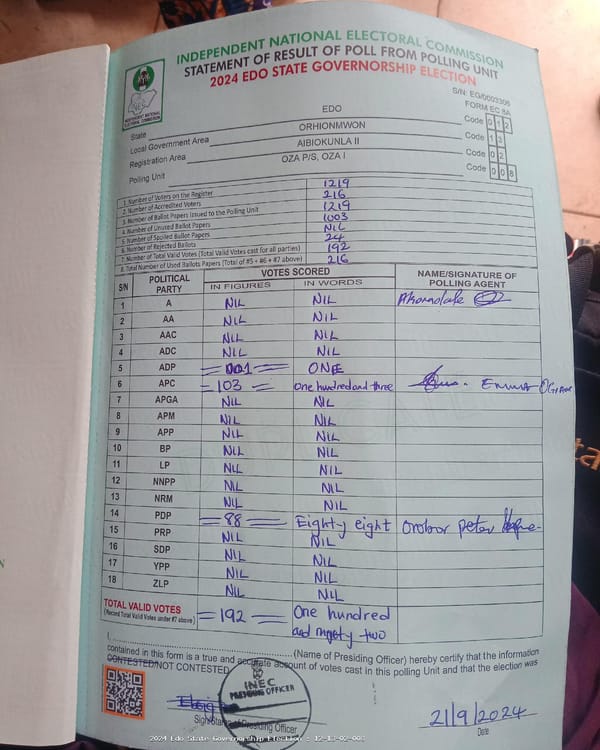 INDEPENDENT NATIONAL ELECTORAL COMMISSION
STATEMENT OF RESULT OF POLL FROM POLLING UNIT
2024 EDO STATE GOVERNORSHIP ELECTION
INDEPENDENT NATIONAL ELECTORAL COMMISSION
S/N: EG/0003306
FORM EC 8A
State EDO Code 0 1 2
Local Government Area ORHIONMWON Code 1 3
Registration Area AIBIOKUNLA II Code 0 2
Polling Unit OZA P/S, OZA I Code 0 0 8
1. Number of Voters on the Register 1219
2. Number of Accredited Voters 216
3. Number of Ballot Papers Issued to the Polling Unit 1219
4. Number of Unused Ballot Papers 1003
5. Number of Spoiled Ballot Papers NIL
6. Number of Rejected Ballots 24
7. Number of Total Valid Votes (Total Valid Votes cast for all parties) 192
8. Total Number of Used Ballots Papers (Total of #5 + #6 + #7 above) 216
S/N POLITICAL PARTY VOTES SCORED NAME/SIGNATURE OF POLLING AGENT
IN FIGURES IN WORDS
1 A NIL NIL
2 AA NIL NIL
3 AAC NIL NIL
4 ADC NIL NIL
5 ADP 001 ONE
6 APC 103 One hundred and three Emma
7 APGA NIL NIL
8 APM NIL NIL
9 APP NIL NIL
10 BP NIL NIL
11 LP NIL NIL
12 NNPP NIL NIL
13 NRM NIL NIL
14 PDP 88 Eighty eight peter
15 PRP NIL NIL
16 SDP NIL NIL
17 YPP NIL NIL
18 ZLP NIL NIL
TOTAL VALID VOTES (Record Total Valid Votes under #7 above) 192 One hundred and ninety two
I, (Name of Presiding Officer) hereby certify that the information
contained in this form is a true and accurate account of votes cast in this polling Unit and that the election was
CONTESTED/NOT CONTESTED.
INEC
PRESIDING OFFICER
Signature of Presiding Officer
21/9/2024
Date
2024 Edo State Governorship Election : 12-13-02-008